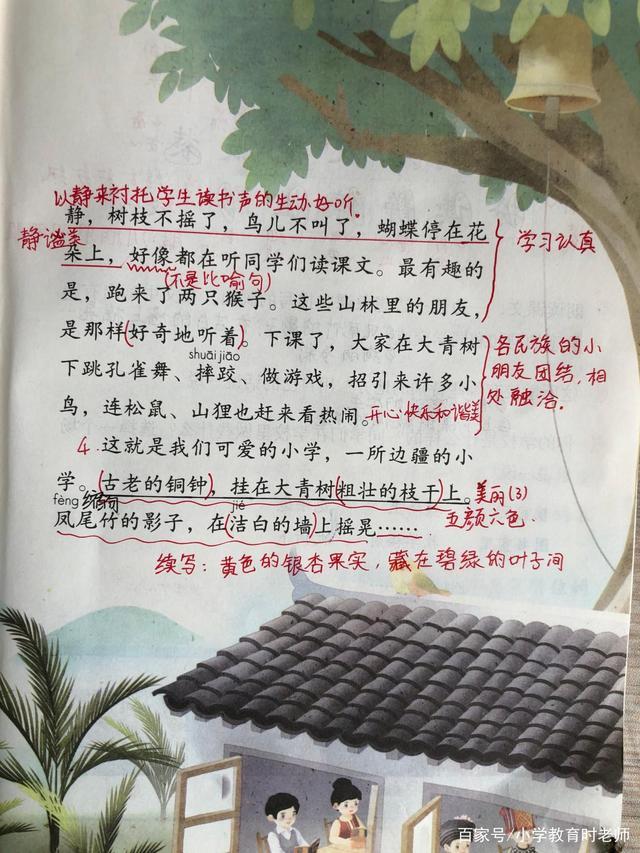 以静来衬托学生读书声的生动好听。
静，树枝不摇了，鸟儿不叫了，蝴蝶停在花
静谧美
朵上，好像都在听同学们读课文。最有趣的
学习认真
(不是比喻句)
是，跑来了两只猴子。这些山林里的朋友，
是那样(好奇地听着)。下课了，大家在大青树
shuāi jiāo
下跳孔雀舞、摔跤、做游戏，招引来许多小
各民族的小
朋友团结，相
处融洽.
鸟，连松鼠、山狸也赶来看热闹。开心快乐和谐美
4.这就是我们可爱的小学，一所边疆的小
学。(古老的铜钟)，挂在大青树(粗壮的枝干)上。美丽(3)
fèng 缩句 jié
凤尾竹的影子，在(洁白的墙)上摇晃……
五颜六色.
续写：黄色的银杏果实，藏在碧绿的叶子间
百家号/小学教育时老师